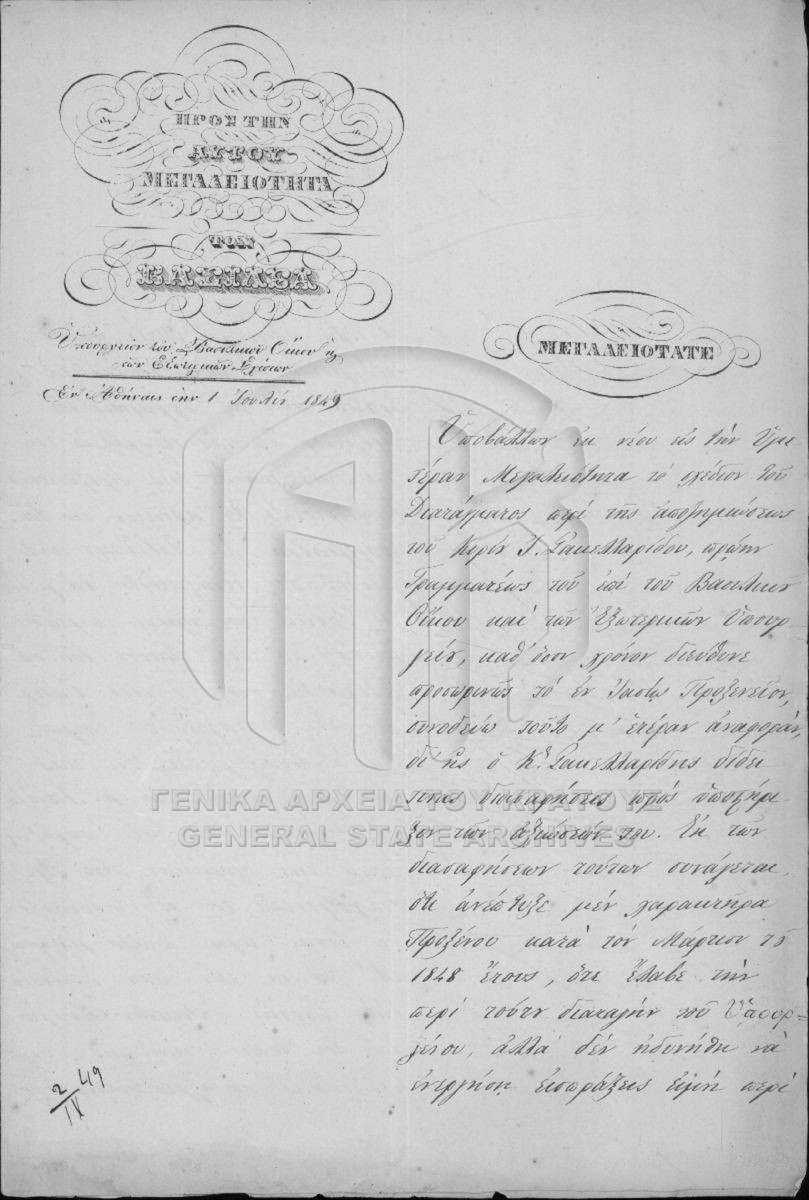 ΠΡΟΣ ΤΗΝ
ΑΥΤΟΥ
ΜΕΓΑΛΕΙΟΤΗΤΑ
ΤΟΝ
ΒΑΣΙΛΕΑ
Ὑπουργεῖον τοῦ Βασιλικοῦ Οἴκου κ
τῶν Ἐξωτερικῶν Σχέσεων
Ἐν Ἀθήναις τὴν 1 Ἰουλίου 1849
ΜΕΓΑΛΕΙΟΤΑΤΕ
Ὑποβάλλων ἐκ νέου εἰς τὴν Ὑμε
τέραν Μεγαλειότητα τὸ σχέδιον τοῦ
Διατάγματος περὶ τῆς ἀποζημιώσεως
τοῦ Κυρίου Ι. Σακελλαρίδου, πρώην
Γραμματέως τοῦ ἐπὶ τοῦ Βασιλικοῦ
Οἴκου καὶ τῶν Ἐξωτερικῶν Ὑπουρ
γείου, καθ' ὅσον χρόνον διεύθυνε
προσωρινῶς τὸ ἐν Ἰασίῳ Προξενεῖον,
συνοδεύω τοῦτο μ' ἑτέραν ἀναφορὰν,
δι' ἧς ὁ Κ. Σακελλαρίδης δίδει
τινὰς διασαφήσεις πρὸς ὑποστήρι
ξιν τῶν ἀξιώσεών του. Ἐκ τῶν
διασαφήσεων τούτων συνάγεται,
ὅτι ἀνέπτυξε μὲν χαρακτῆρα
Προξένου κατὰ τὸν Μάρτιον τοῦ
1848 ἔτους, ὅτε ἔλαβε τὴν
περὶ τούτου διαταγὴν τοῦ Ὑπουρ=
γείου, ἀλλὰ δὲν ἠδυνήθη νὰ
ἐνεργήσῃ εἰσπράξεις εἰμὴ περὶ
2/IX 49
ΓΕΝΙΚΑ ΑΡΧΕΙΑ ΤΟΥ ΚΡΑΤΟΥΣ
GENERAL STATE ARCHIVES